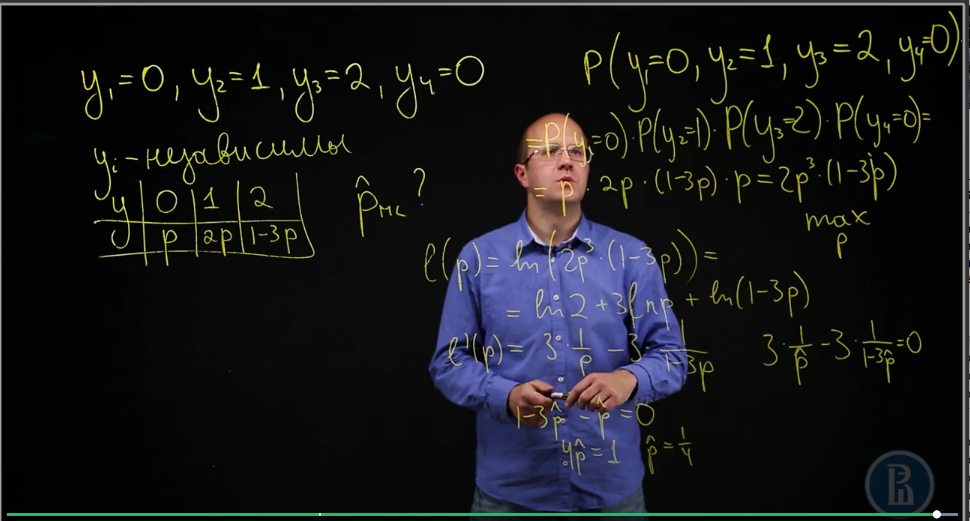 y₁=0, y₂=1, y₃=2, y₄=0
yᵢ - независимы
y | 0 | 1 | 2
y | p | 2p | 1-3p
p̂мс ?
P(y₁=0, y₂=1, y₃=2, y₄=0)
=P(y₁=0)·P(y₂=1)·P(y₃=2)·P(y₄=0)=
= p · 2p · (1-3p) · p = 2p³·(1-3p)
max
p
ℓ(p) = ln(2p³·(1-3p)) =
= ln 2 + 3ln p + ln(1-3p)
ℓ'(p) = 3·1/p - 3·1/(1-3p)
3·1/p̂ - 3·1/(1-3p̂)=0
1-3p̂ - p̂ = 0
4p̂ = 1
p̂ = 1/4